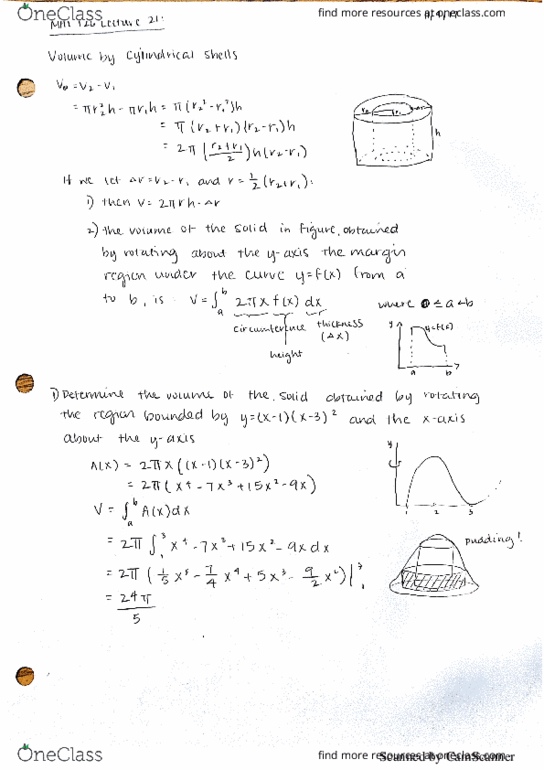 OneClass
find more resources at oneclass.com
Lecture 21:
Volume by Cylindrical Shells
= V₂ - V₁
= πr₂²h - πr₁h = π(r₂² - r₁²)h
= π(r₂+r₁)(r₂-r₁)h
= 2π((r₂+r₁)/2)h(r₂-r₁)
r₂ r₁ h
If we let Δr = r₂-r₁ and r = 1/2(r₂+r₁):
1) then V = 2πrh·Δr
2) the volume of the solid in figure, obtained
by rotating about the y-axis the margin
region under the curve y=f(x) from a
to b, is: V = ∫ₐᵇ 2πx f(x) dx where 0 ≤ a < b
circumference thickness
(Δx)
height
y y=f(x)
a b
1) Determine the volume of the solid obtained by rotating
the region bounded by y=(x-1)(x-3)² and the x-axis
about the y-axis
A(x) = 2πx((x-1)(x-3)²)
= 2π(x⁴ - 7x³ + 15x² - 9x)
V = ∫ₐᵇ A(x)dx
y
1 2 3
= 2π ∫₁³ x⁴ - 7x³ + 15x² - 9x dx
pudding!
= 2π(1/5 x⁵ - 7/4 x⁴ + 5x³ - 9/2 x²)|₁³
= 24π/5
OneClass
find more resources at oneclass.com
Scanned by CamScanner